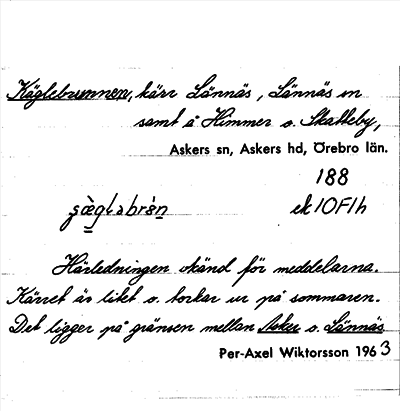 Käglebrunnen, kärr Lännäs, Lännäs sn
samt å Himmer o. Skatteby,
Askers sn, Askers hd, Örebro län.
188
ek 10F1h
Härledningen okänd för meddelarna.
Kärret är litet o. torkar ur på sommaren.
Det ligger på gränsen mellan Asker o. Lännäs
Per-Axel Wiktorsson 1963